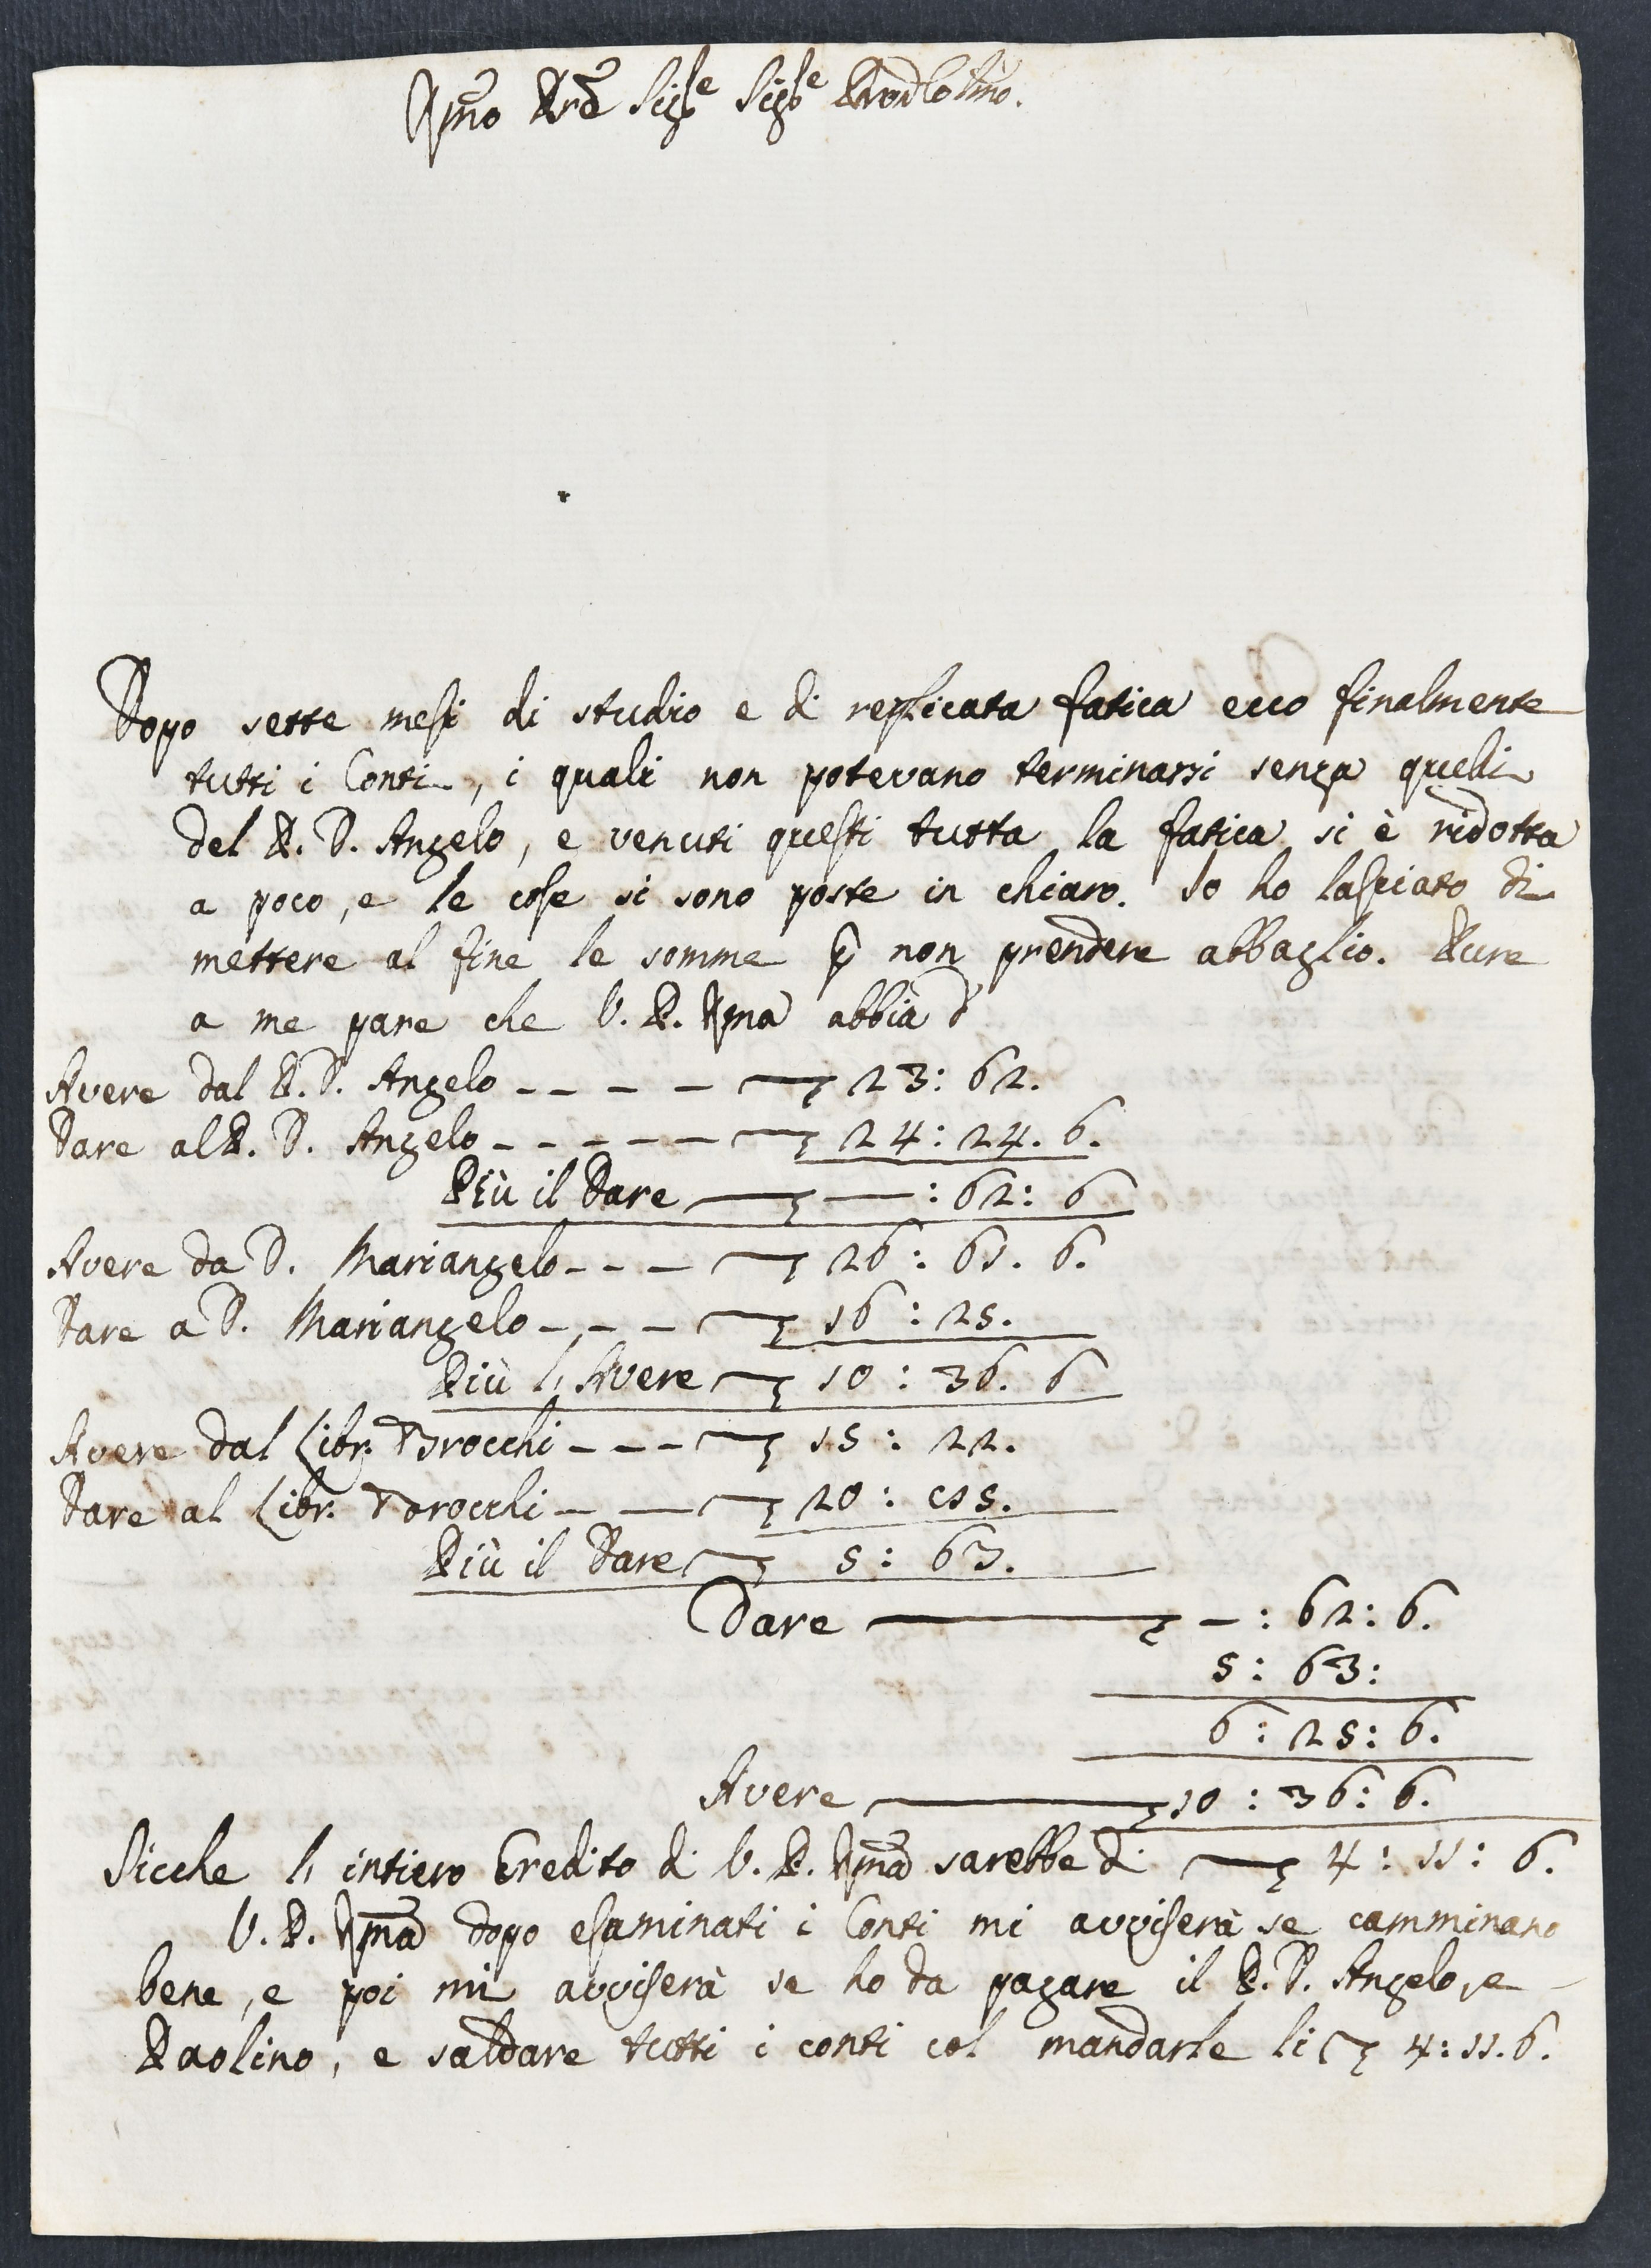 Rmo Pre Sigre Sigre Prone Colmo.
Dopo sette mesi di studio e di replicata fatica ecco finalmente
tutti i Conti, i quali non potevano terminarsi senza quelli
del P. D. Angelo, e venuti questi tutta la fatica si è ridotta
a poco, e le cose si sono poste in chiaro. Io ho lasciato di
mettere al fine le somme p non prendere abbaglio. Pure
a me pare che V. P. Rma abbia d'
Avere dal P. D. Angelo - - - - 23: 62.
Dare al P. D. Angelo - - - - - 24: 24. 6.
Più il Dare — : 62: 6
Avere da D. Mariangelo - - - 26: 61. 6.
Dare a D. Mariangelo - - - 16: 25.
Più l'Avere 10: 36. 6
Avere dal Libr. Brocchi - - - 15: 22.
Dare al Libr. Brocchi - — 20: 15.
Più il Dare 5: 63.
Dare — - : 62: 6.
5: 63:
6: 25: 6.
Avere — 10: 36: 6.
Sicche l'intiero Credito di V. P. Rma sarebbe di — 4: 11: 6.
V. P. Rma dopo esaminati i Conti mi avviserà se camminano
bene, e poi mi avviserà se ho da pagare il P. D. Angelo, e
Paolino, e saldare tutti i conti col mandarle li 4: 11. 6.